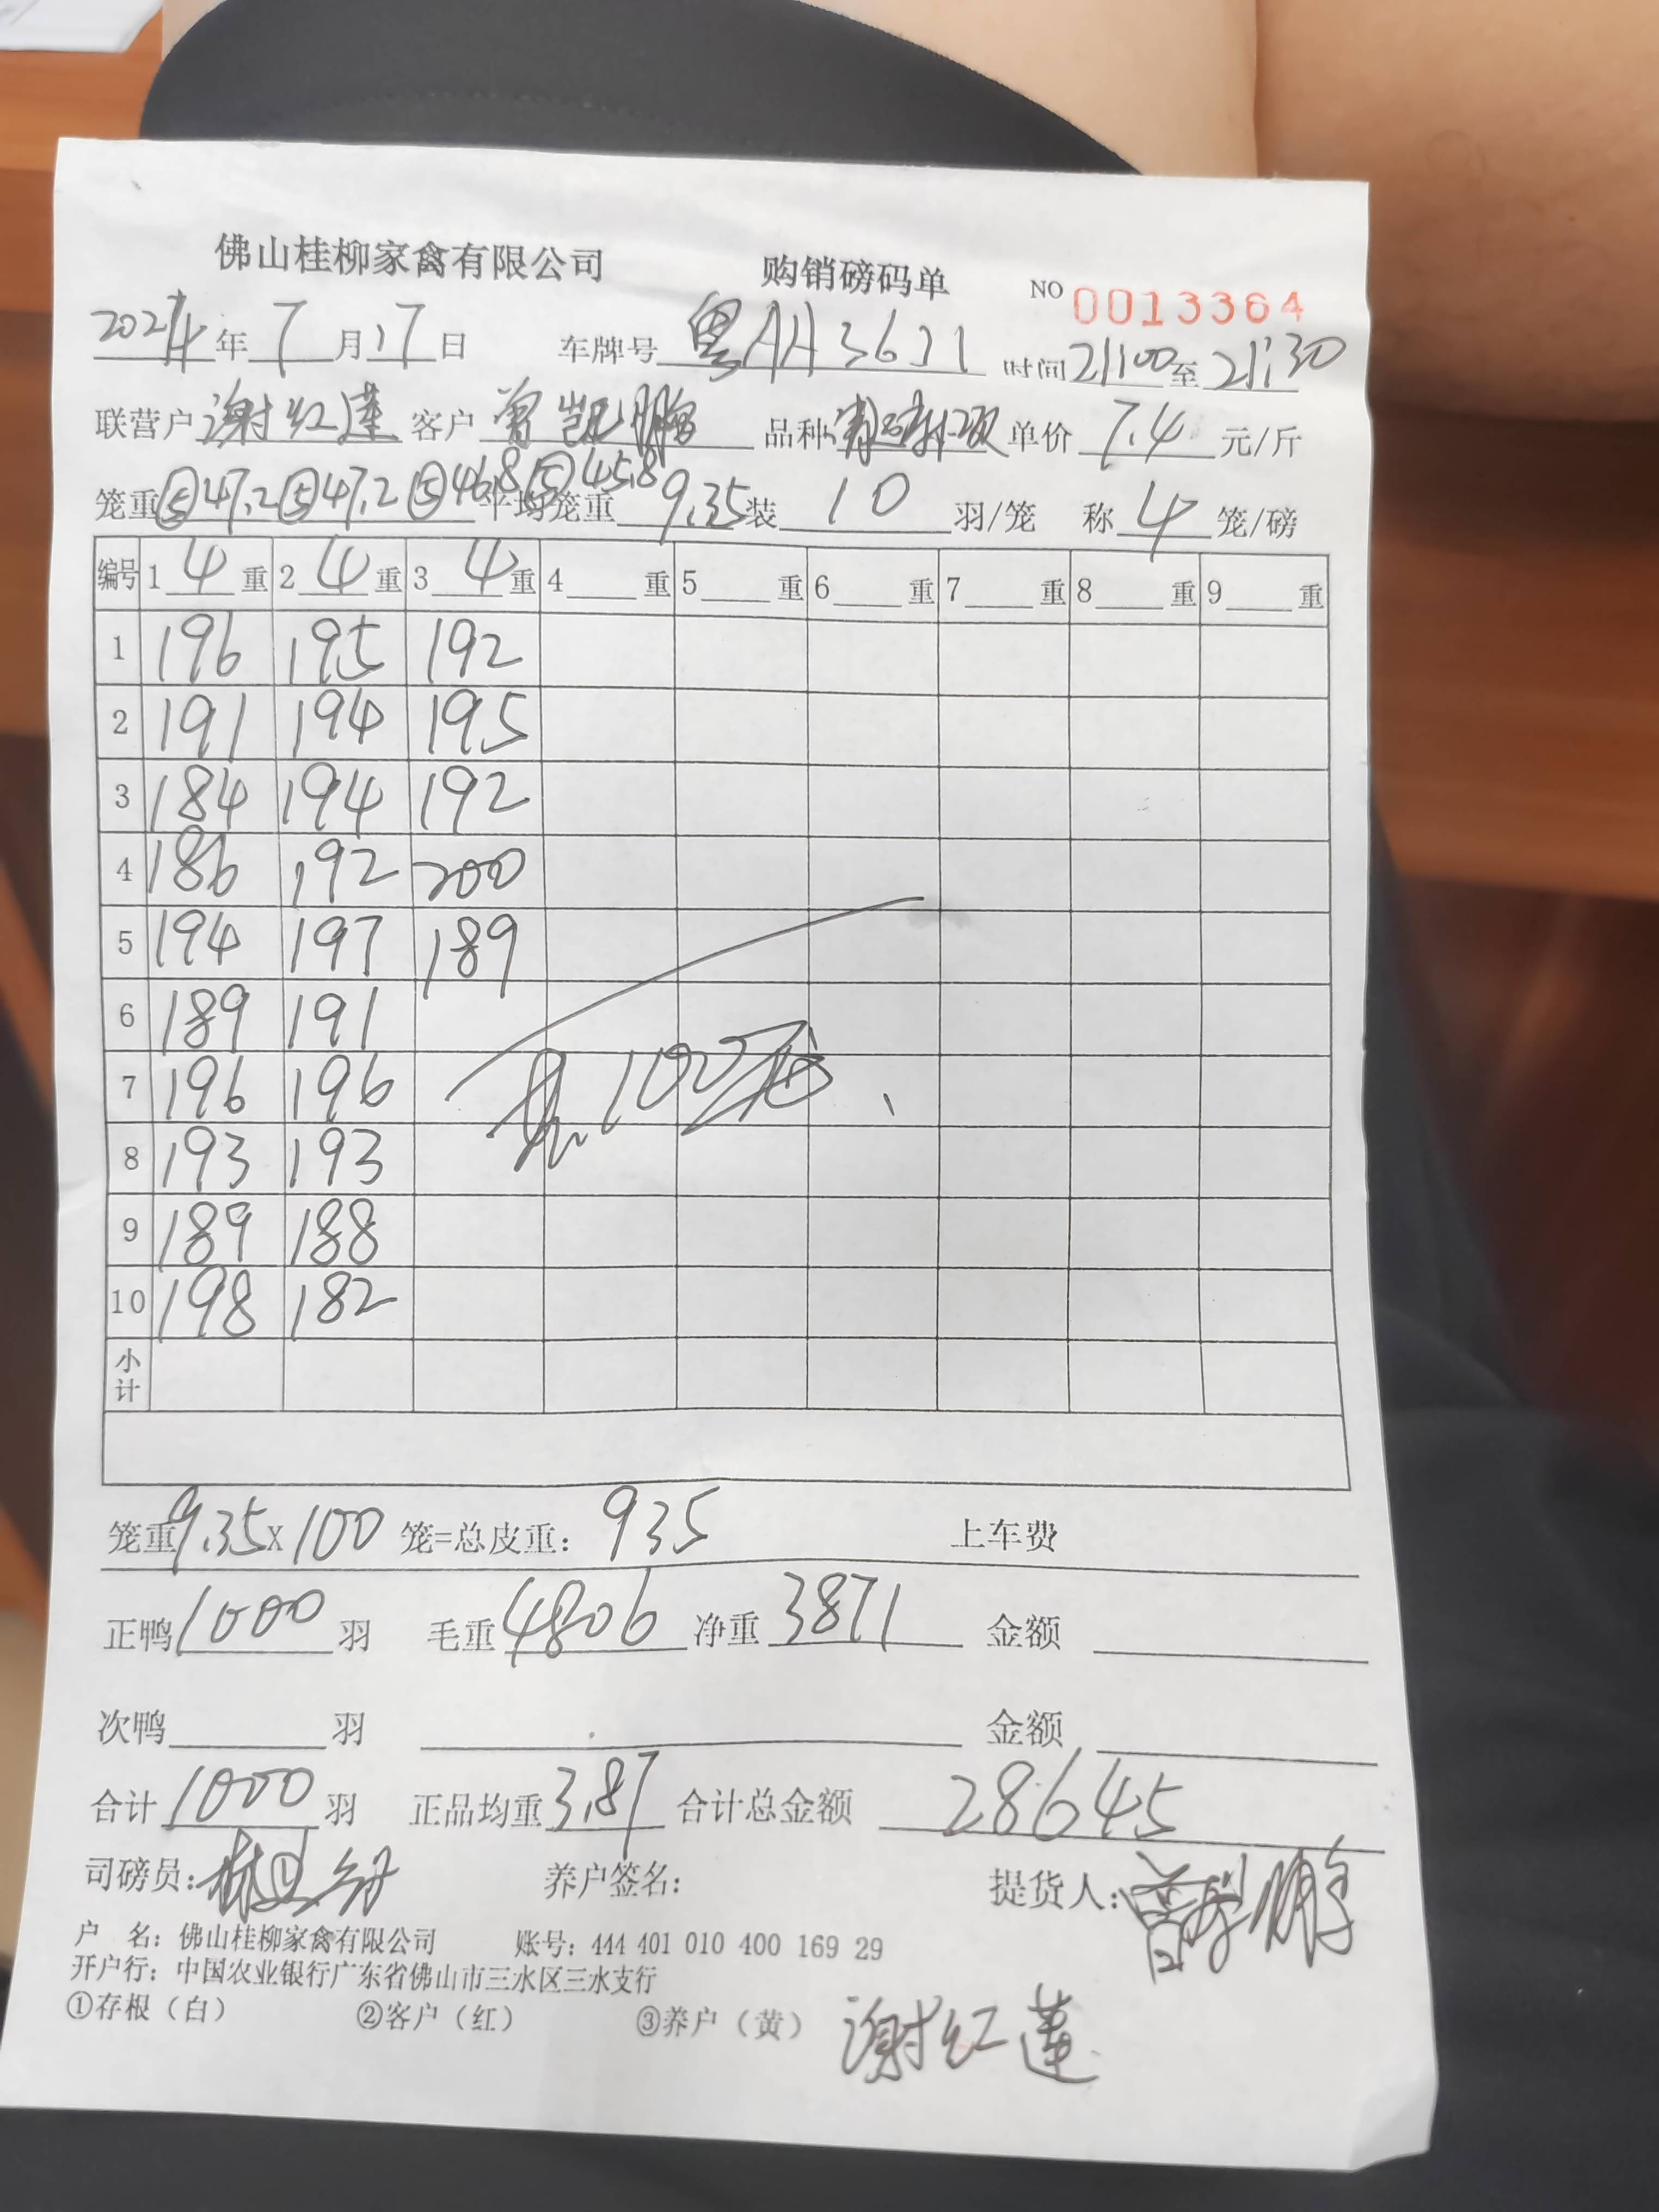 佛山桂柳家禽有限公司 购销磅码单 NO 0013364
2024年7月17日 车牌号 粤AA3621 时间21:00至21:30
联营户 谢红莲 客户 曾凯鹏 品种 单价 7.4 元/斤
笼重⑤47.2⑤47.2⑤46.8⑤45.8 平均笼重 9.35 装 10 羽/笼 称 4 笼/磅
编号 1 4 重 2 4 重 3 4 重 4 重 5 重 6 重 7 重 8 重 9 重
1 196 195 192
2 191 194 195
3 184 194 192
4 186 192 200
5 194 197 189
6 189 191
7 196 196
共100笼
8 193 193
9 189 188
10 198 182
小计
笼重9.35X100 笼=总皮重: 935 上车费
正鸭 1000 羽 毛重 4806 净重 3871 金额
次鸭 羽 金额
合计 1000 羽 正品均重 3.87 合计总金额 28645
司磅员: 养户签名: 提货人: 曾凯鹏
户 名: 佛山桂柳家禽有限公司 账号: 444 401 010 400 169 29
开户行: 中国农业银行广东省佛山市三水区三水支行
①存根（白） ②客户（红） ③养户（黄） 谢红莲